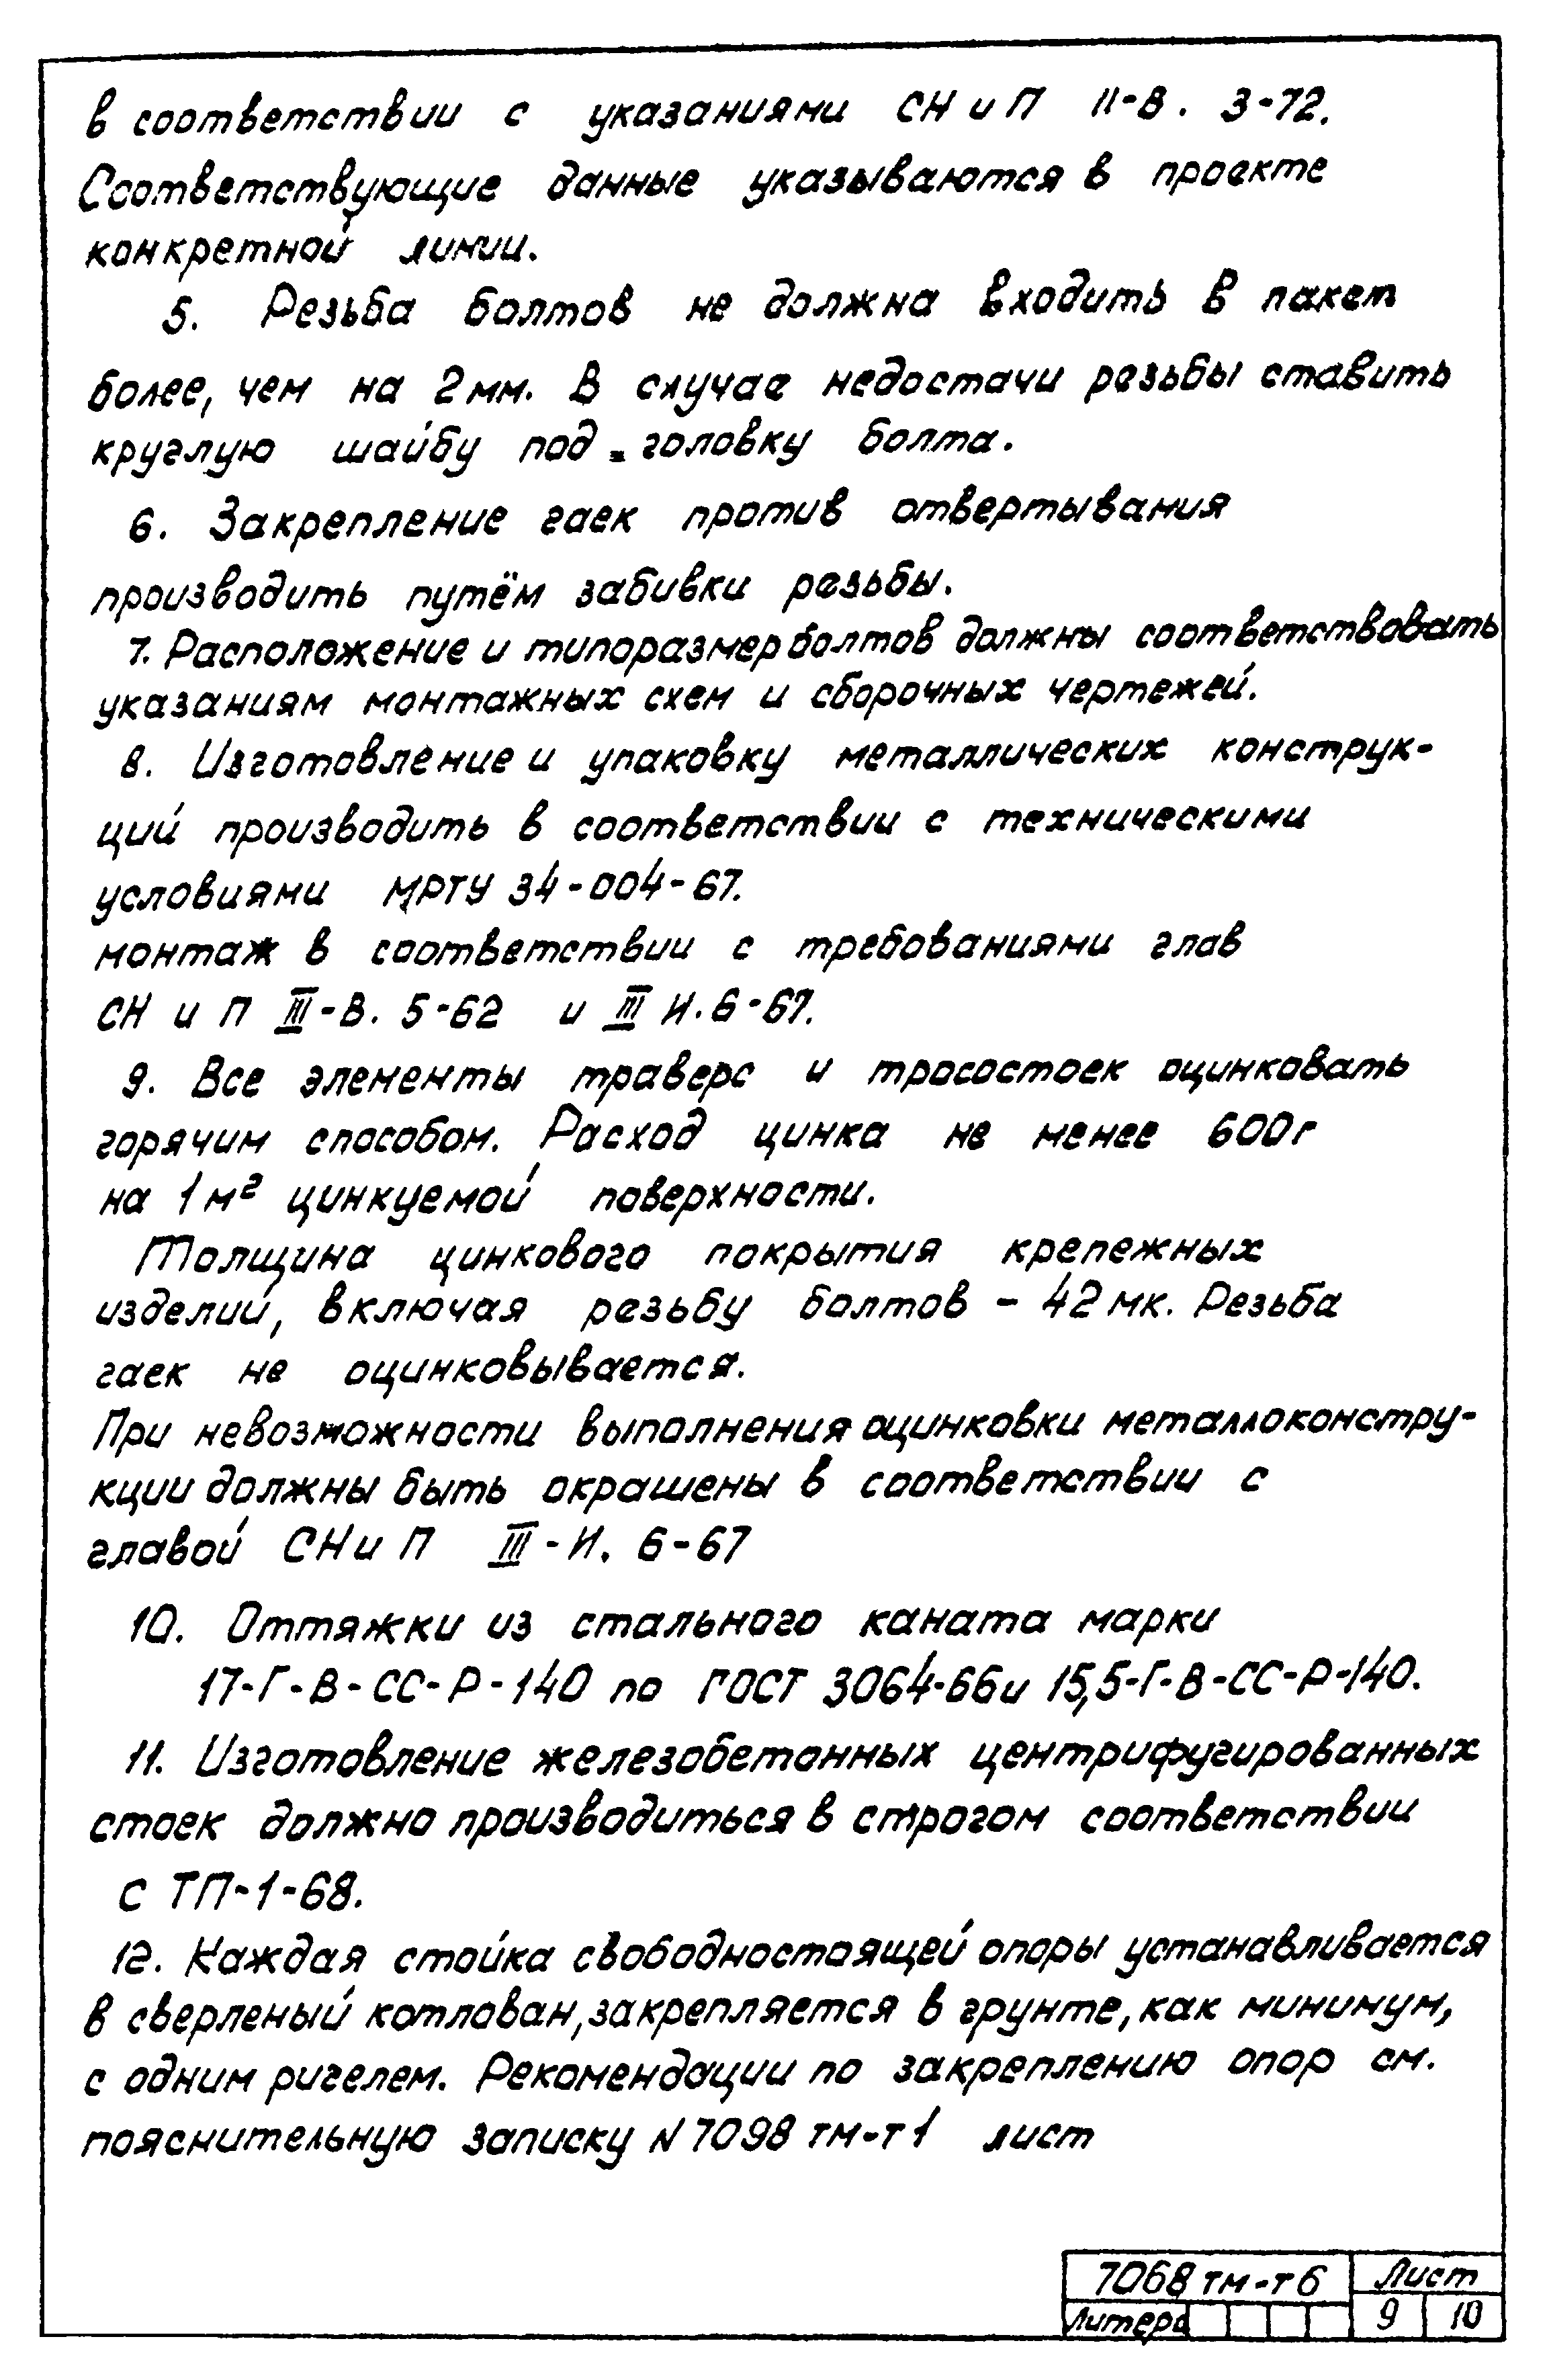 в соответствии с указаниями СН и П II-В. 3-72.
Соответствующие данные указываются в проекте
конкретной линии.
5. Резьба болтов не должна входить в пакет
более, чем на 2 мм. В случае недостачи резьбы ставить
круглую шайбу под головку болта.
6. Закрепление гаек против отвертывания
производить путём забивки резьбы.
7. Расположение и типоразмер болтов должны соответствовать
указаниям монтажных схем и сборочных чертежей.
8. Изготовление и упаковку металлических конструк-
ций производить в соответствии с техническими
условиями МРТУ 34-004-67.
монтаж в соответствии с требованиями глав
СН и П III-В. 5-62 и III И. 6-67.
9. Все элементы траверс и тросостоек оцинковать
горячим способом. Расход цинка не менее 600 г
на 1 м² цинкуемой поверхности.
Толщина цинкового покрытия крепежных
изделий, включая резьбу болтов - 42 мк. Резьба
гаек не оцинковывается.
При невозможности выполнения оцинковки металлоконстру-
кции должны быть окрашены в соответствии с
главой СН и П III-И. 6-67
10. Оттяжки из стального каната марки
17-Г-В-СС-Р-140 по ГОСТ 3064-66 и 15,5-Г-В-СС-Р-140.
11. Изготовление железобетонных центрифугированных
стоек должно производиться в строгом соответствии
с ТП-1-68.
12. Каждая стойка свободностоящей опоры устанавливается
в сверленый котлован, закрепляется в грунте, как минимум,
с одним ригелем. Рекомендации по закреплению опор см.
пояснительную записку N 7098 тм-т1 лист
7068 тм-т6 Лист
Литера 9 10